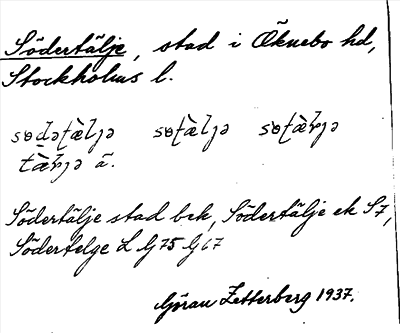 Södertälje, stad i Öknebo hd,
Stockholms l.
søḍətæ̀ljə søtæ̀ljə søtæ̀ljə
tæ̀ljə ä.
Södertälje stad bek, Södertälje ek S7,
Södertelge L G75 G67
Göran Zetterberg 1937.